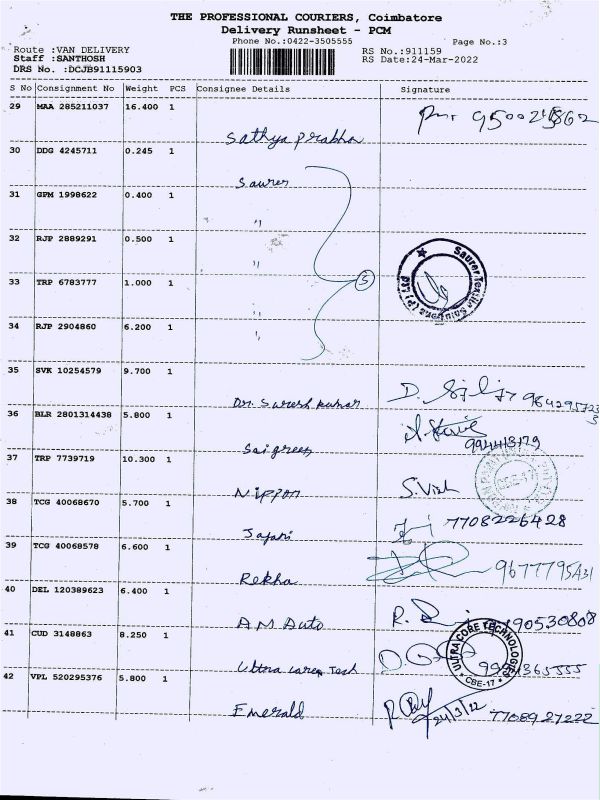 THE PROFESSIONAL COURIERS, Coimbatore
Delivery Runsheet - PCM
Phone No.:0422-3505555 Page No.:3
Route :VAN DELIVERY RS No.:911159
Staff :SANTHOSH RS Date:24-Mar-2022
DRS No. :DCJB91115903
S No Consignment No Weight PCS Consignee Details Signature
29 MAA 285211037 16.400 1
Sathya prabha
30 DDG 4245711 0.245 1
Saurer
31 GPM 1998622 0.400 1
"
32 RJP 2889291 0.500 1
"
33 TRP 6783777 1.000 1 5
"
34 RJP 2904860 6.200 1
"
Saurer Textile Solutions (P) Ltd
35 SVK 10254579 9.700 1
Dr. Suresh kumar
36 BLR 2801314438 5.800 1
Saigreen
37 TRP 7739719 10.300 1
Nippon S. Vish
38 TCG 40068670 5.700 1
7708226428
39 TCG 40068578 6.600 1
Rekha 9677795431
40 DEL 120389623 6.400 1
A M Auto R.
41 CUD 3148863 8.250 1
Ultra Tech
ULTRA CORE TECHNOLOGIES
CBE-17
42 VPL 520295376 5.800 1
Emerald 24/3/22 7708927222